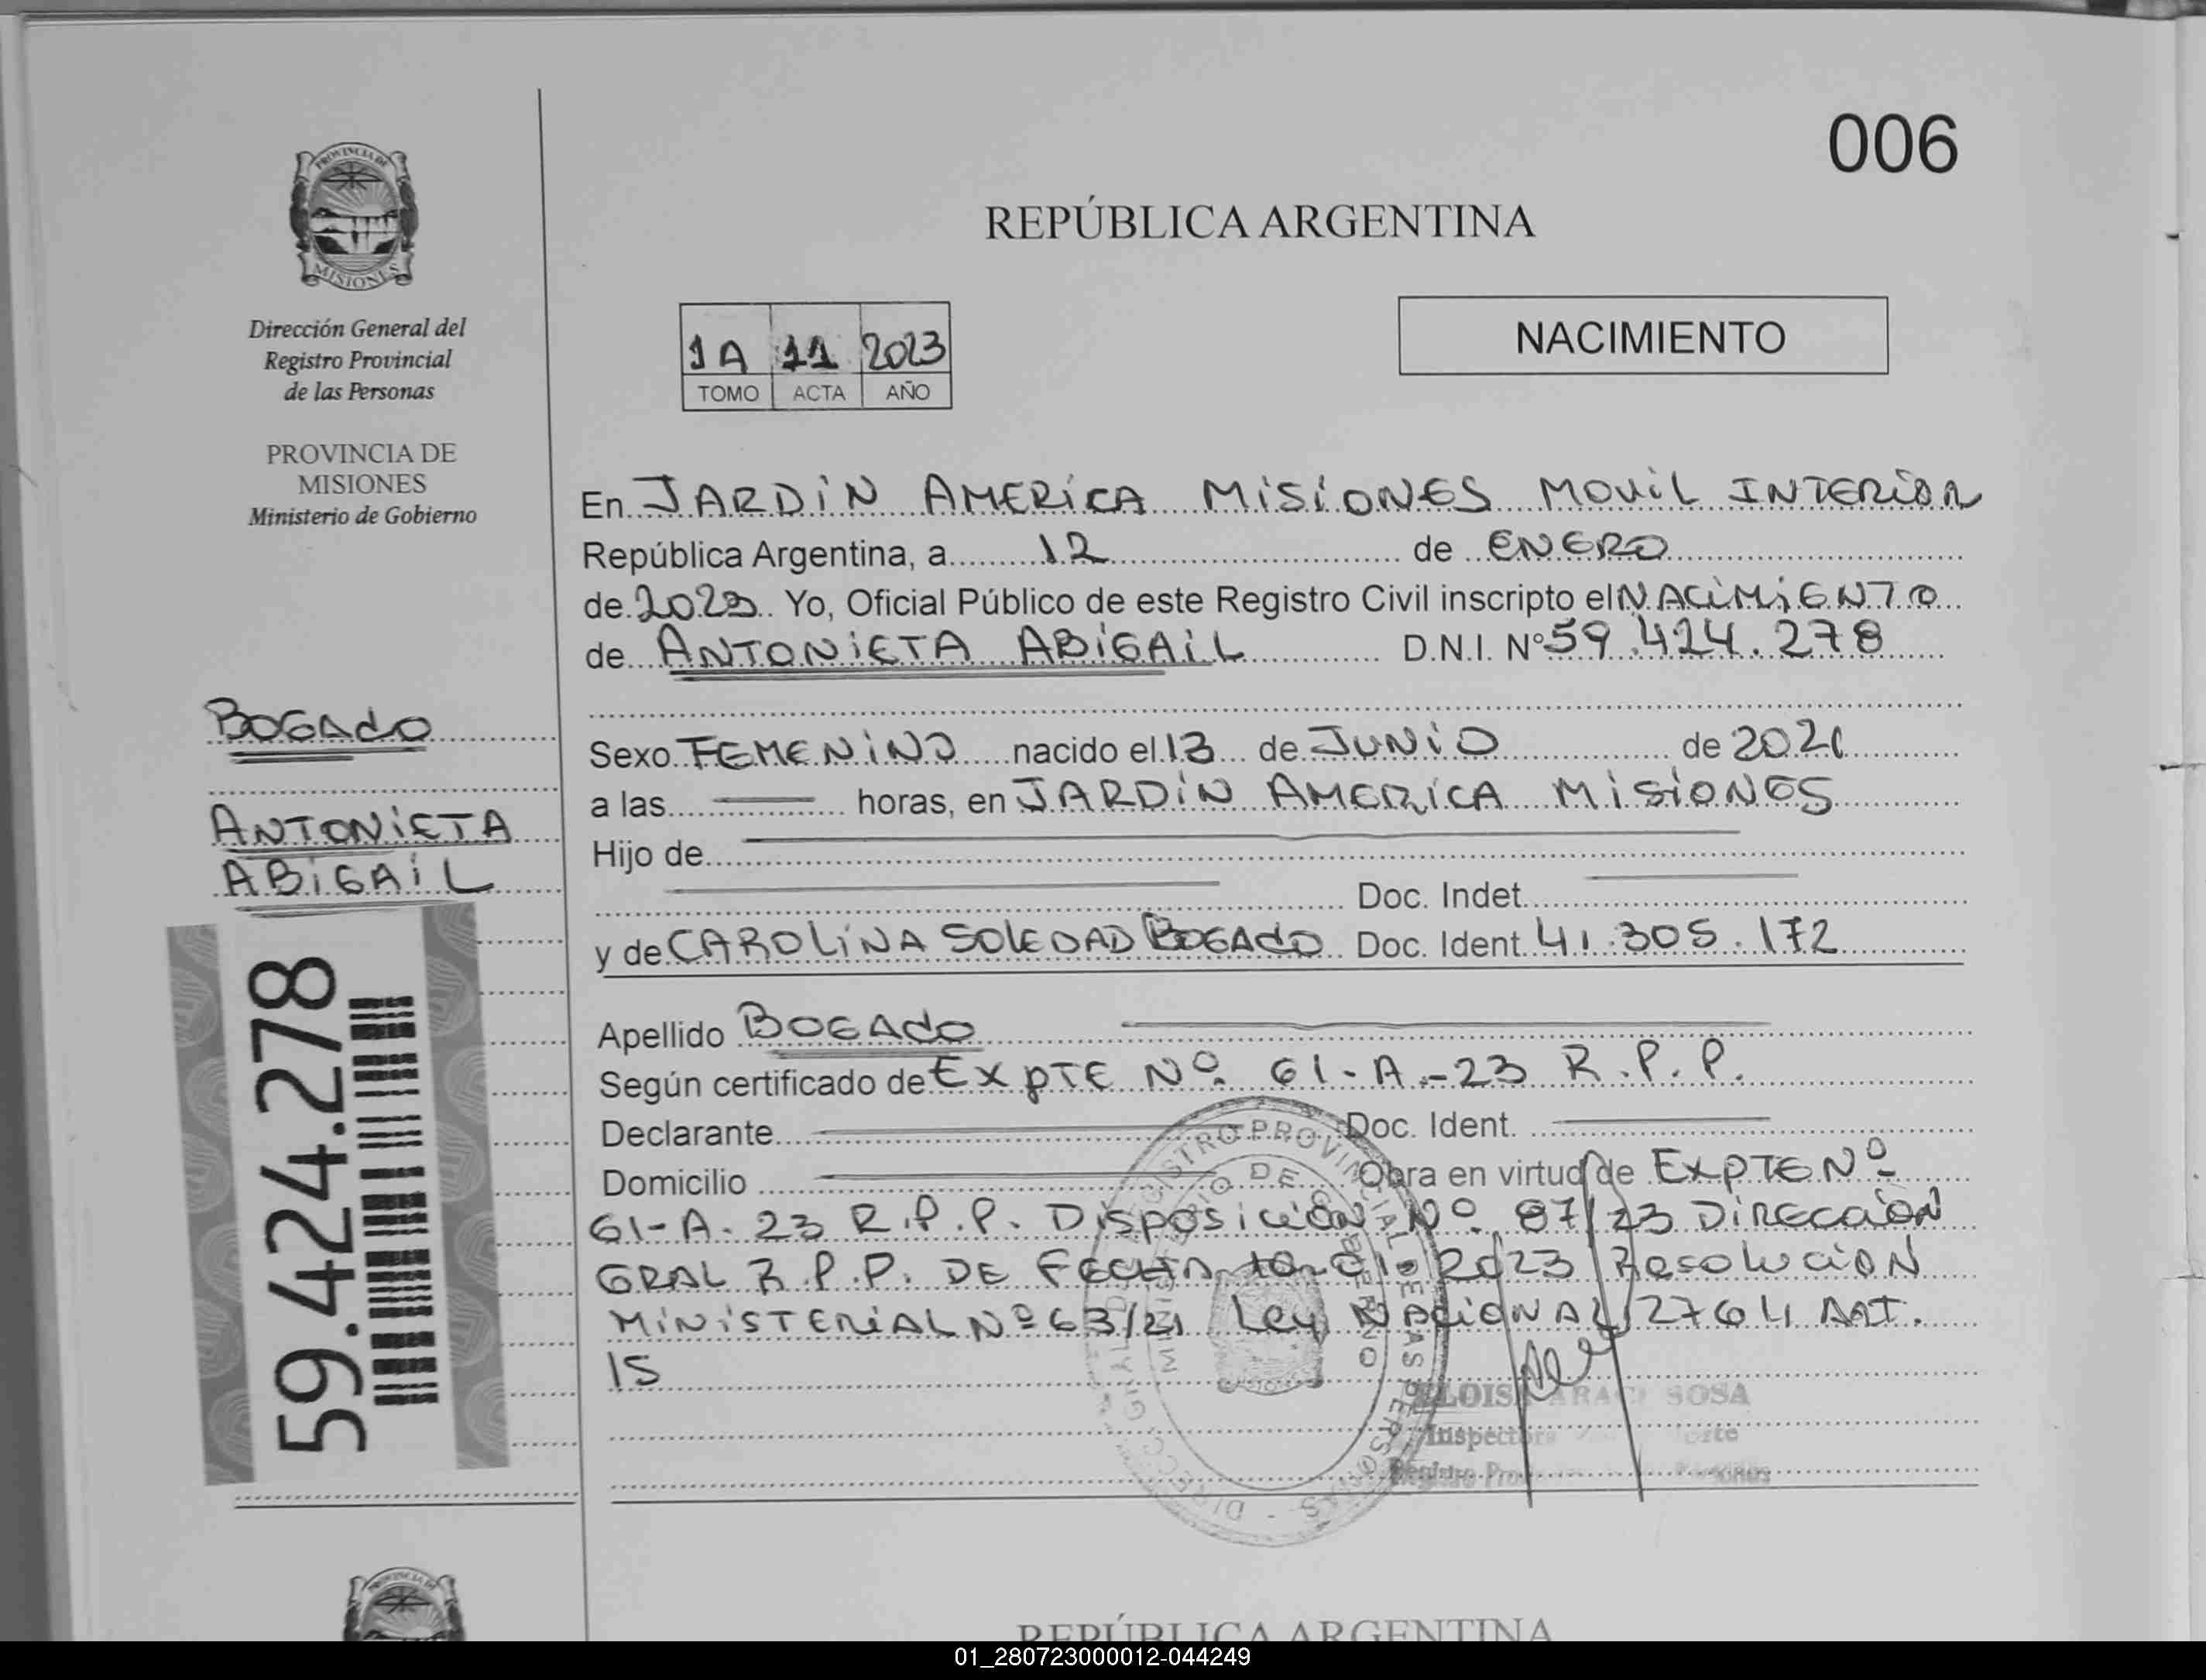 006
REPÚBLICA ARGENTINA
PROVINCIA DE
MISIONES
Dirección General del
Registro Provincial
de las Personas
PROVINCIA DE
MISIONES
Ministerio de Gobierno
1A 11 2023
TOMO ACTA AÑO
NACIMIENTO
En JARDIN AMERICA MISIONES MOVIL INTERIOR
República Argentina, a 12 de ENERO
de 2023 Yo, Oficial Público de este Registro Civil inscripto el NACIMIENTO
de ANTONIETA ABIGAIL D.N.I. N° 59.424.278
BOGADO
ANTONIETA
ABIGAIL
59.424.278
Sexo FEMENINO nacido el 13 de JUNIO de 2021
a las horas, en JARDIN AMERICA MISIONES
Hijo de
Doc. Indet.
y de CAROLINA SOLEDAD BOGADO Doc. Ident. 41.305.172
Apellido BOGADO
Según certificado de EXPTE Nº 61-A-23 R.P.P.
Declarante Doc. Ident.
Domicilio Obra en virtud de EXPTE Nº
61-A-23 R.P.P. DISPOSICION Nº 87/23 DIRECCION
GRAL R.P.P. DE FECHA 10-01-2023 RESOLUCION
MINISTERIAL Nº 63/21 LEY NACIONAL 27611 ART.
15
MINISTERIO DE GOBIERNO
SOSA
Inspectora
REPÚBLICA ARGENTINA
01_280723000012-044249